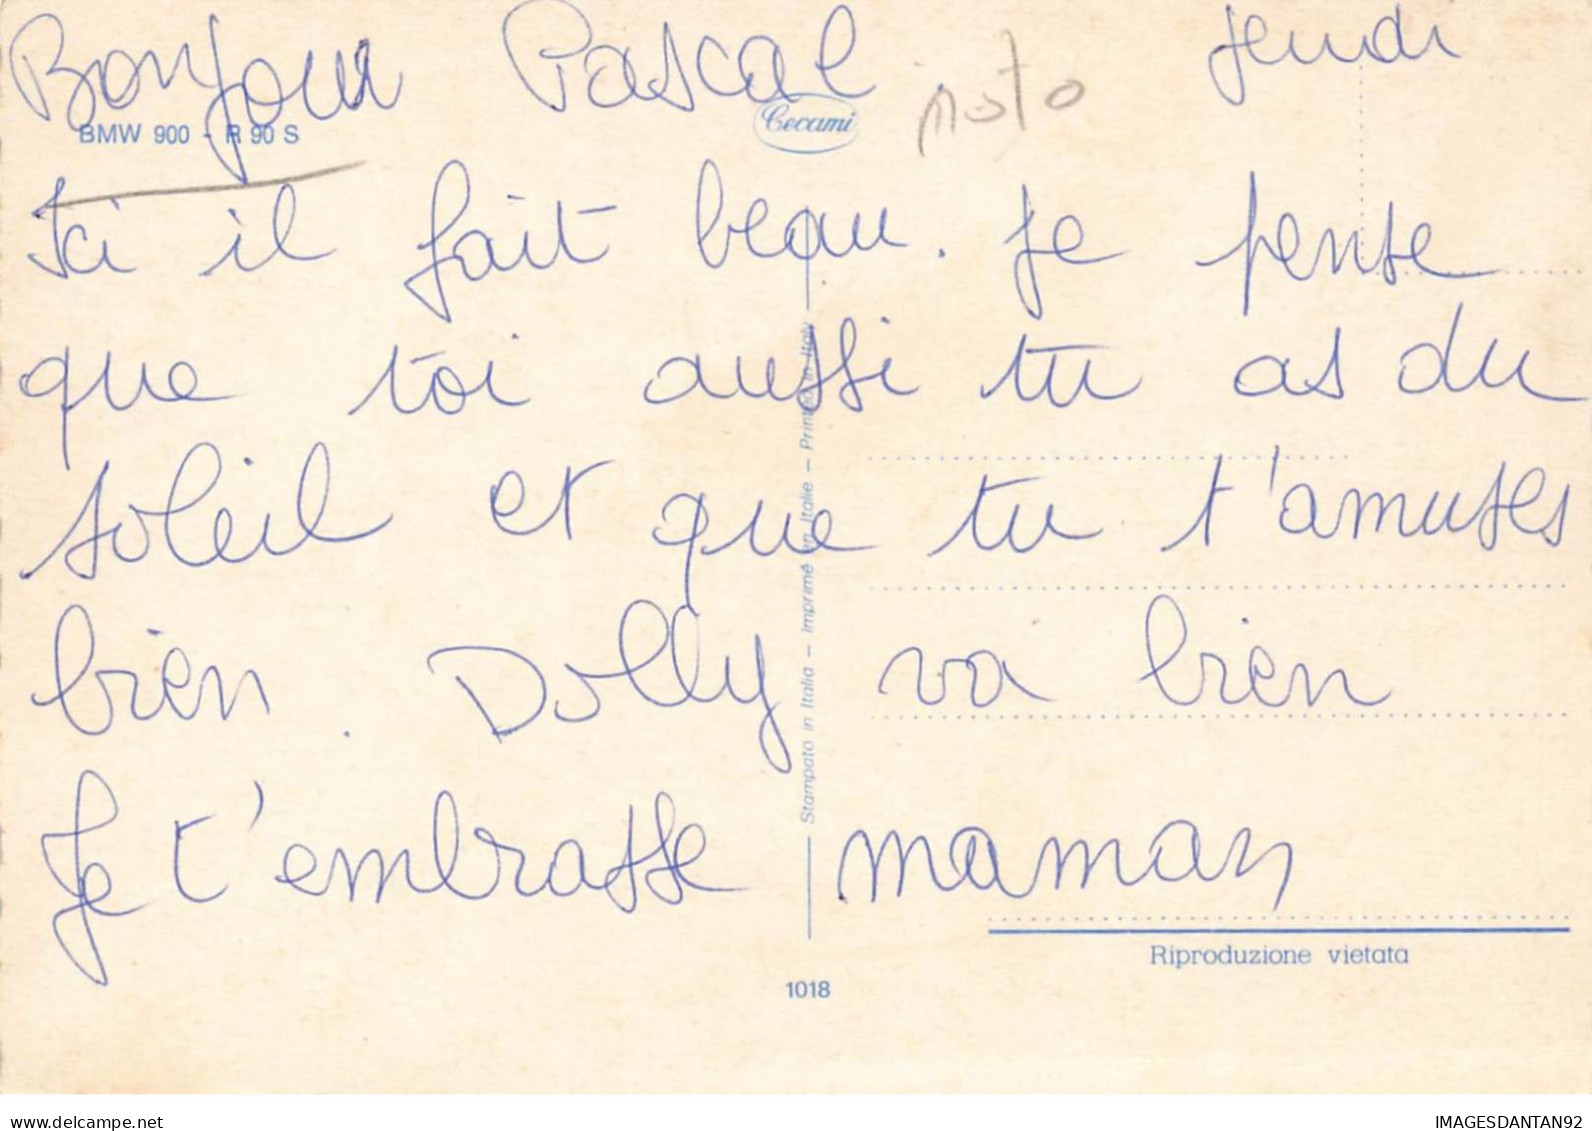 Bonjour Pascal moto jeudi
BMW 900 - R 90 S Cecami
Ici il fait beau. Je pense
que toi aussi tu as du
soleil et que tu t'amuses
bien. Dolly va bien
Je t'embrasse maman
Stampato in Italia — Imprimé en Italie — Printed in Italy
Riproduzione vietata
1018
www.delcampe.net
IMAGESDANTAN92